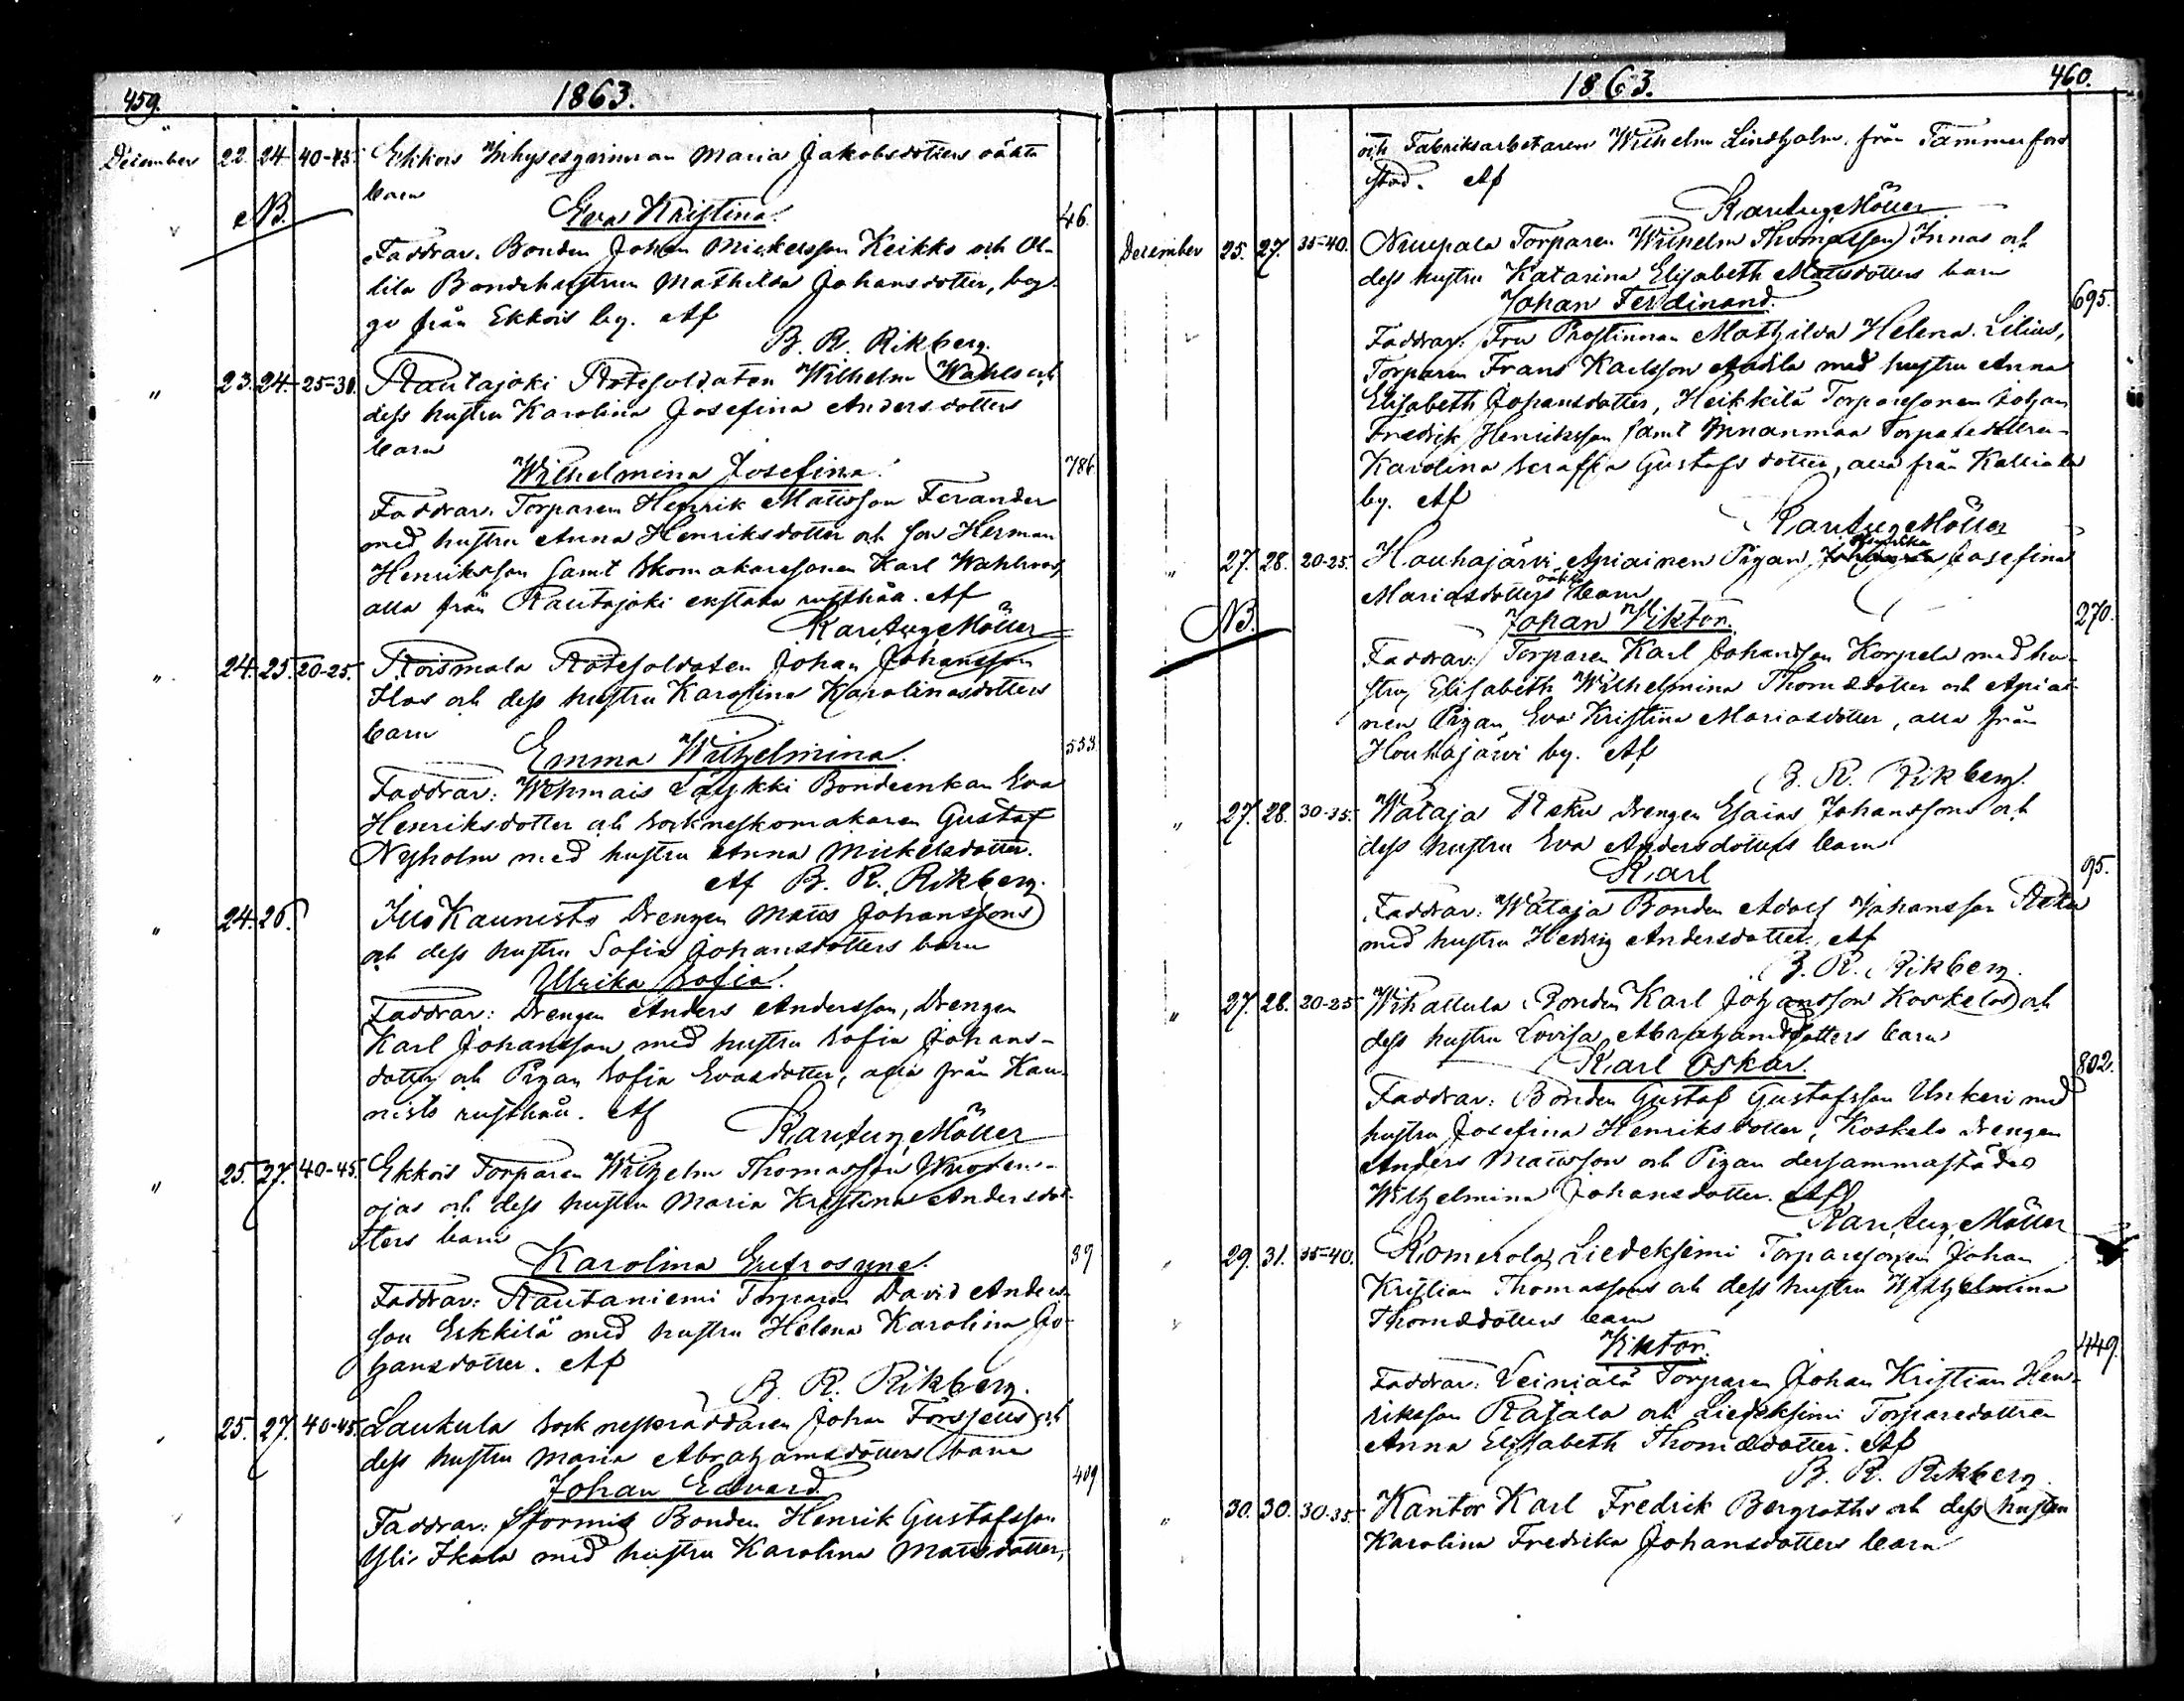 459.
1863.
December 22. 24. 40-45. Ekkois Inhysesqvinnan Maria Jakobsdotters oäkta
barn
NB.
Eva Kristina. 46.
Faddrar. Bonden Johan Mickelsson Keikko och Ol-
lila Bondehustrun Mathilda Johansdotter, beg-
ge från Ekkois by. Af
B. R. Rikberg.
" 23. 24. 25-30. Rautajoki Rotesoldaten Wilhelm Wahls och
dess hustru Karolina Josefina Andersdotters
barn
Wilhelmina Josefina. 786.
Faddrar. Torparen Henrik Mattsson Ferander
med hustru Anna Henriksdotter och son Herman
Henriksson samt Skomakaresonen Karl Wahlroos,
alla från Rautajoki enstaka rusthåll. Af
Karl Aug. Möller
" 24. 25. 20-25. Roismala Rotesoldaten Johan Johansson
Flos och dess hustru Karolina Karolinasdotters
barn
Emma Wilhelmina. 553.
Faddrar: Wehmais Laykki Bondeenkan Eva
Henriksdotter och Sockneskomakaren Gustaf
Nyholm med hustru Anna Mickelsdotter.
Af B. R. Rikberg.
" 24. 26. Illo Kaunisto Drengen Matts Johanssons
och dess hustru Sofia Johansdotters barn
Ulrika Sofia.
Faddrar: Drengen Anders Andersson, Drengen
Karl Johansson med hustru Sofia Johans-
dotter och Pigan Sofia Evasdotter, alla från Kau-
nisto rusthåll. Af
Karl Aug. Möller
" 25. 27. 40-45. Ekkois Torparen Wilhelm Thomasson
ojas och dess hustru Maria Kristina Andersdot-
ters barn
Karolina Eufrosyne. 39
Faddrar: Rautaniemi Torparen David Anders-
son Erkkilä med hustru Helena Karolina Jo-
hansdotter. Af
B. R. Rikberg.
25. 27. 40-45. Laukula Sockneskräddaren Johan Forsjells och
dess hustru Maria Abrahamsdotters barn
Johan Edvard 409
Faddrar: Stormis Bonden Henrik Gustafsson
Yli-Ikala med hustru Karolina Mattsdotter,
1863.
460.
och Fabriksarbetaren Wilhelm Lindholm från Tammerfors
stad. Af
Karl Aug. Möller
December 25. 27. 35-40. Nuupala Torparen Wilhelm Thomasson Innas och
dess hustru Katarina Elisabeth Mattsdotters barn
Johan Ferdinand. 695.
Faddrar: Fru Prostinnan Mathilda Helena Lilius,
Torparen Frans Karlsson Andila med hustru Anna
Elisabeth Johansdotter, Heikkilä Torparesonen Johan
Fredrik Henriksson samt Innanmaa Torparedottren
Karolina Seraffia Gustafsdotter, alla från Kallialа
by. Af
Karl Aug. Möller
" 27. 28. 20-25. Houhajärvi Apiainen Pigan Josefina
Mariasdotters oäkta barn
NB.
Johan Viktor. 270.
Faddrar: Torparen Karl Johansson Korpela med hu-
stru Elisabeth Wilhelmina Thomædotter och Apiai-
nen Pigan Eva Kristina Mariasdotter, alla från
Houhajärvi by. Af
B. R. Rikberg.
" 27. 28. 30-35. Wataja Reku Drengen Esaias Johanssons och
dess hustru Eva Andersdotters barn
Karl 95.
Faddrar: Wataja Bonden Adolf Johansson Reku
med hustru Hedvig Andersdotter. Af
B. R. Rikberg.
" 27. 28. 20-25 Wihattula Bonden Karl Johansson Koskelas och
dess hustru Lovisa Abrahamsdotters barn
Karl Oskar. 802.
Faddrar: Bonden Gustaf Gustafsson Unkeri med
hustru Josefina Henriksdotter, Koskela Drengen
Anders Mattsson och Pigan dersammastädes
Wilhelmina Johansdotter. Af
Karl Aug. Möller
" 29. 31. 35-40. Komerola Liedeksimi Torparesonen Johan
Kristian Thomassons och dess hustru Wilhelmina
Thomædotters barn
Viktor. 449.
Faddrar: Leiniälä Torparen Johan Kristian Hen-
riksson Rajala och Liedeksimi Torparedottren
Anna Elisabeth Thomædotter. Af
B. R. Rikberg.
" 30. 30. 30-35. Kantor Karl Fredrik Bergroths och dess hustru
Karolina Fredrika Johansdotters barn